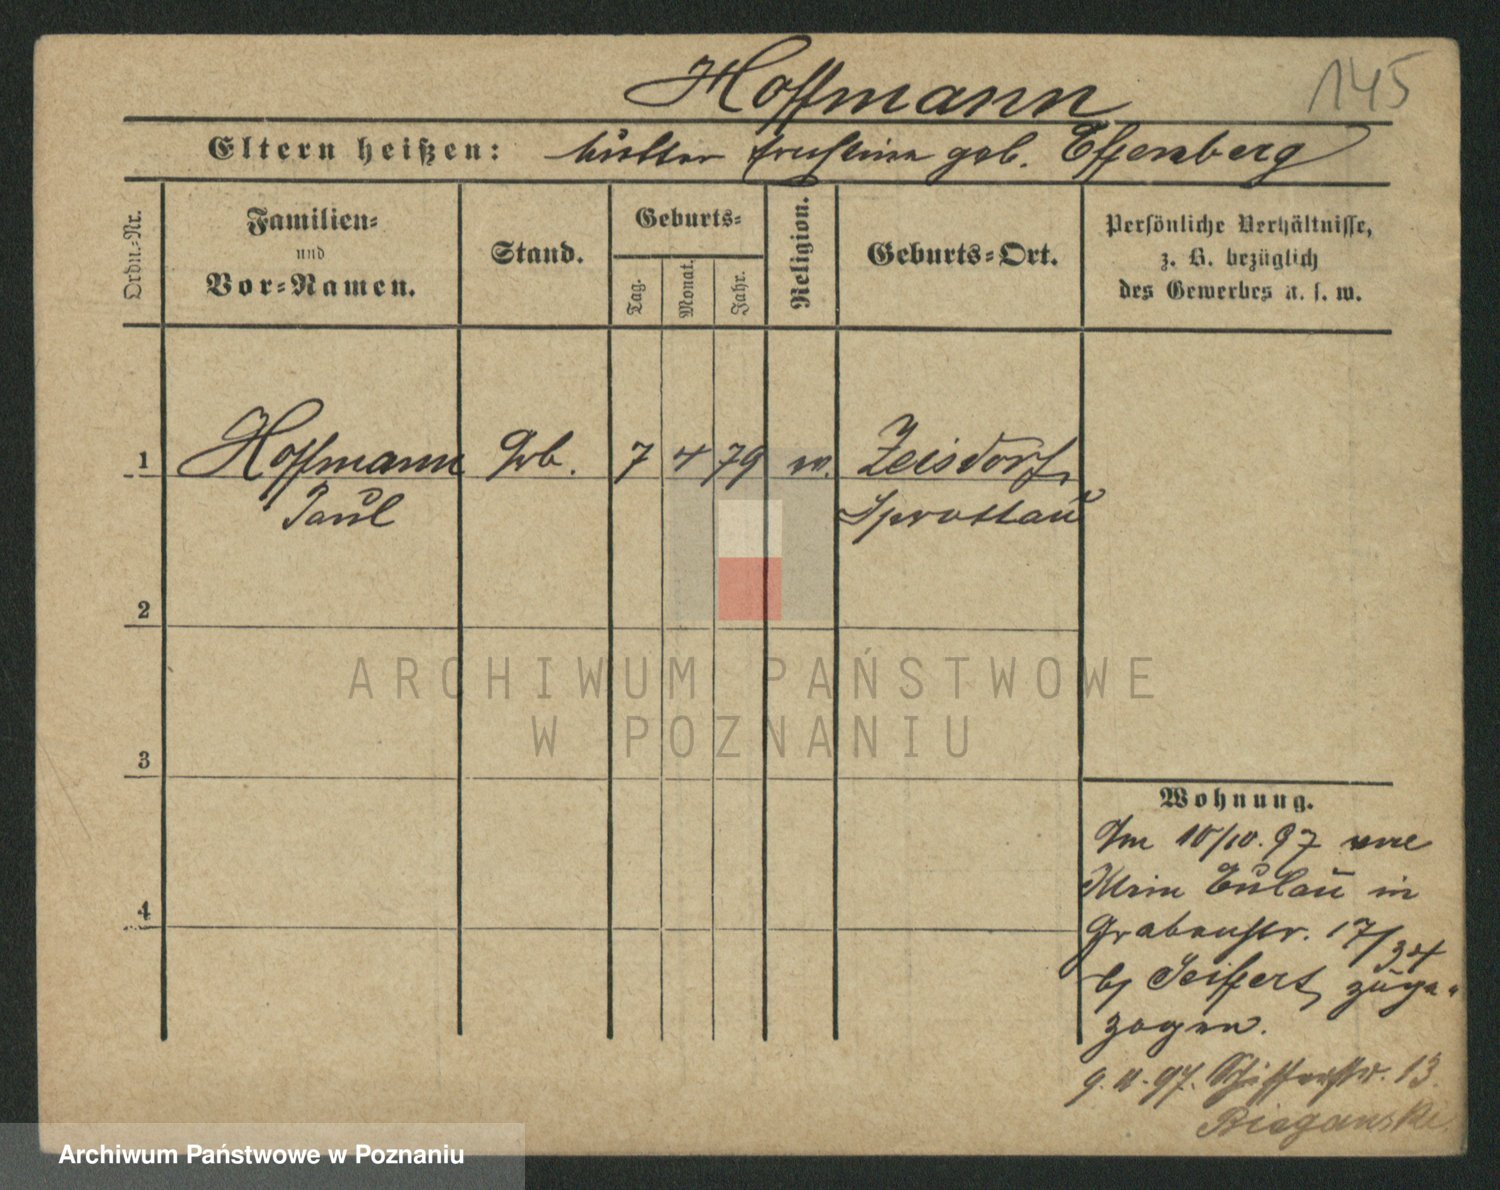 Hoffmann
145
Eltern heißen: Mutter Ernstine geb. Effenberg
Ordn.-Nr.
Familien-
und
Vor-Namen.
Stand.
Geburts-
Tag.
Monat.
Jahr.
Religion.
Geburts-Ort.
Persönliche Verhältnisse,
z. B. bezüglich
des Gewerbes u. s. w.
1 Hoffmann Arb. 7 4 79 ev. Zeisdorf,
Paul Sprottau
2
3
4
Wohnung.
Am 10/10. 97 von
Klein Eulau in
Grabenstr. 17/34
b/ Seifert zuge-
zogen.
9. 11. 97. Schifferstr. 13.
Bieganski.
ARCHIWUM PAŃSTWOWE
W POZNANIU
Archiwum Państwowe w Poznaniu